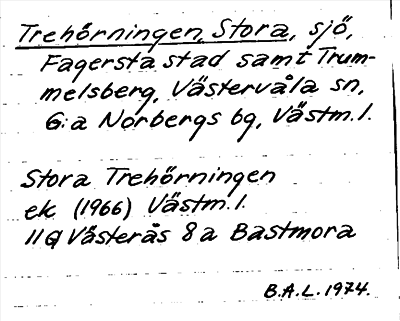 Trehörningen, Stora, sjö,
Fagersta stad samt Trum-
melsberg, Västervåla sn,
G:a Norbergs bg, Västm.l.
Stora Trehörningen
ek (1966) Västm.l.
11G Västerås 8a Bastmora
B.A.L. 1974.